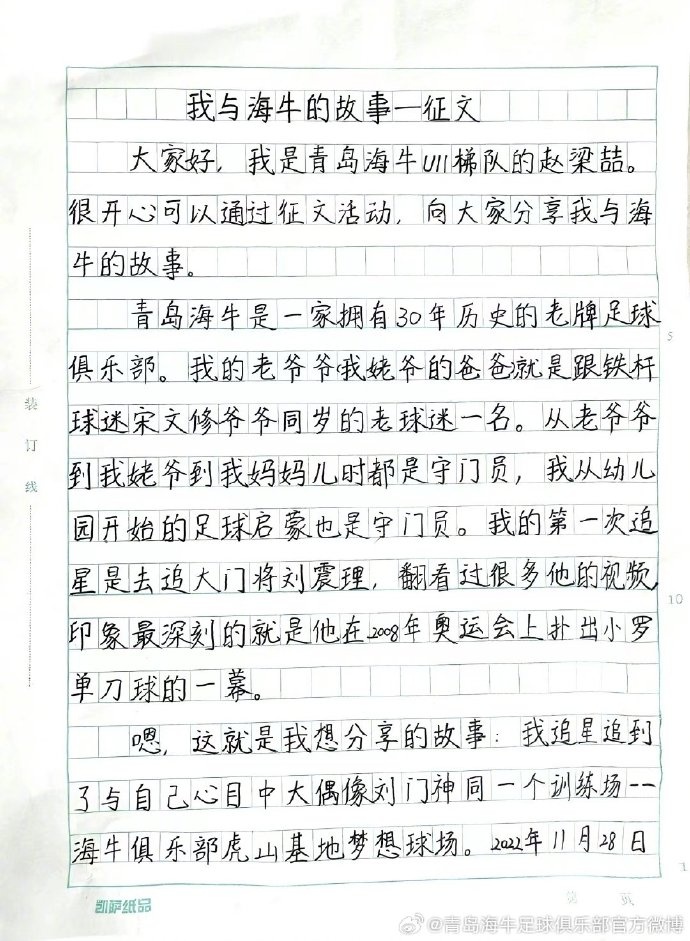 我与海牛的故事—征文
大家好，我是青岛海牛U11梯队的赵梁喆。
很开心可以通过征文活动，向大家分享我与海
牛的故事。
青岛海牛是一家拥有30年历史的老牌足球
俱乐部。我的老爷爷(我姥爷的爸爸)就是跟铁杆
球迷宋文修爷爷同岁的老球迷一名。从老爷爷
到我姥爷到我妈妈儿时都是守门员，我从幼儿
园开始的足球启蒙也是守门员。我的第一次追
星是去追大门将刘震理，翻看过很多他的视频，
印象最深刻的就是他在2008年奥运会上扑出小罗
单刀球的一幕。
嗯，这就是我想分享的故事：我追星追到
了与自己心目中大偶像刘门神同一个训练场--
海牛俱乐部虎山基地梦想球场。2022年11月28日
装
订
线
5
10
1
凯萨纸品
第 页
@青岛海牛足球俱乐部官方微博